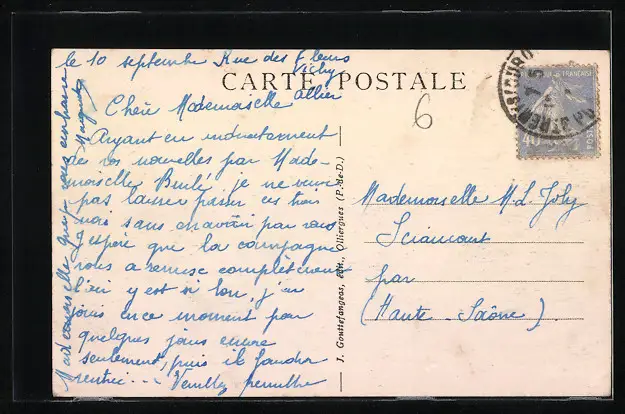 le 10 septembre Rue des Fleurs
Vichy
Allier
CARTE POSTALE
6
Chère Mademoiselle
Ayant eu indirectement
de vos nouvelles par Made-
moiselle je ne veux
pas laisser passer ces trois
mois sans en avoir par vous
J'espère que la campagne
vous a remise complètement
l'air y est si bon, j'en
jouis en ce moment pour
quelques jours encore
seulement, puis il faudra
rentrer... Veuillez permettre
Mademoiselle que je vous embrasse
Marguerite
J. Gouttefangeas, édit., Olliergues (P.-de-D.)
Mademoiselle M. L. Joly
Sciaucourt
par
(Haute-Saône)
FRANÇAISE
40
POSTES